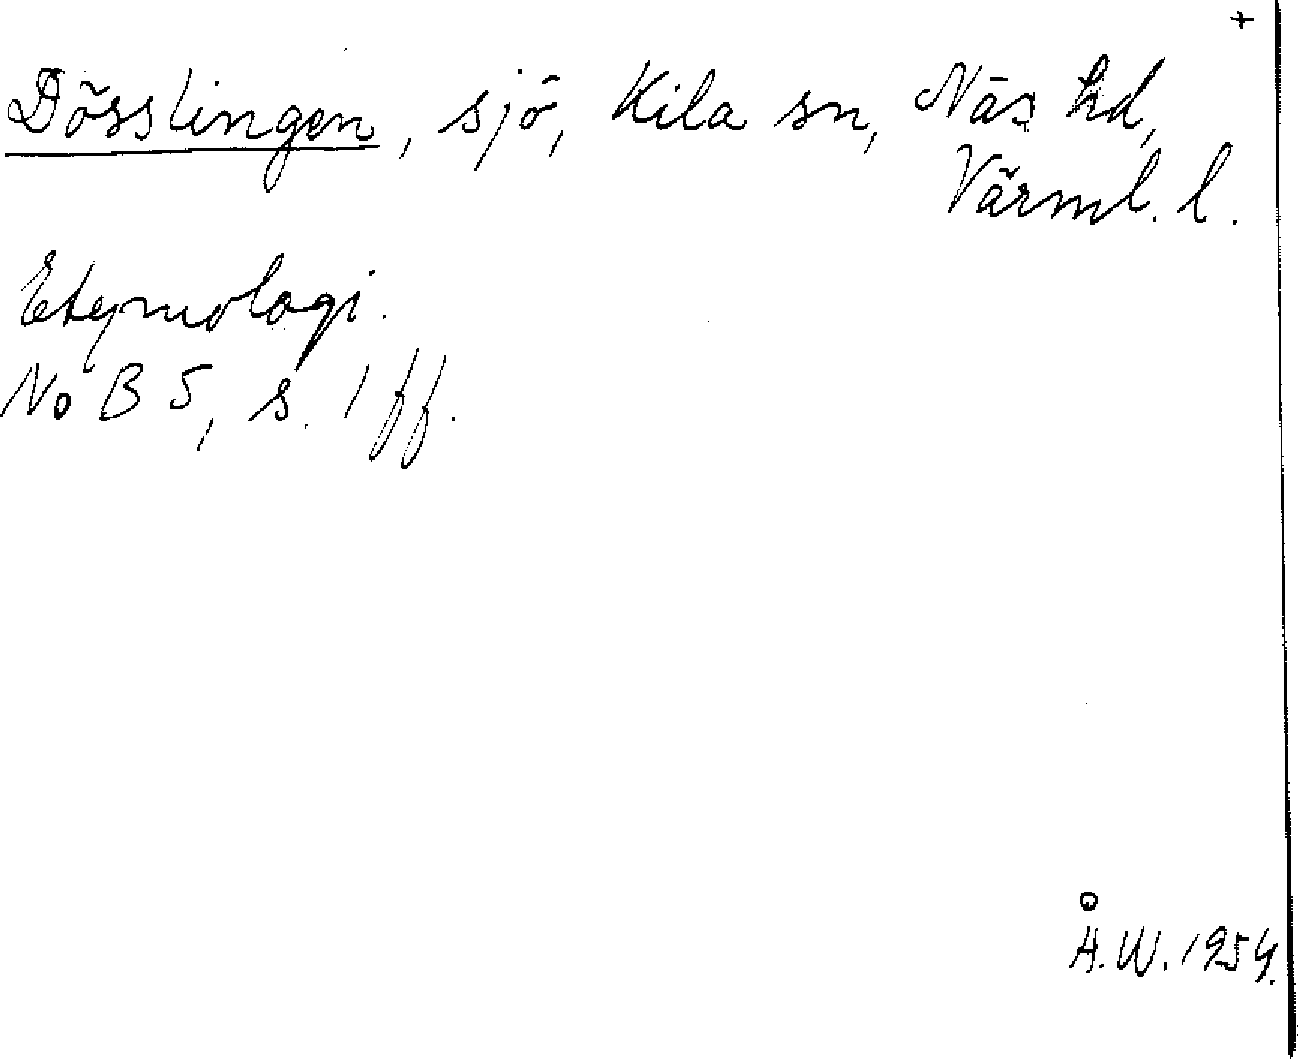 +
Dösslingen, sjö, Kila sn, Näs hd,
Värml. l.
Etymologi.
NoB 5, s. 1 ff.
Å.W. 1954.